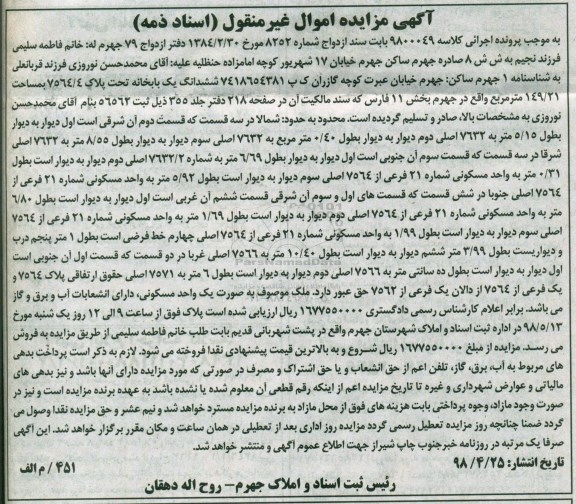 آگهی مزایده اموال غیرمنقول (اسناد ذمه)
به موجب پرونده اجرائی کلاسه ۹۸۰۰۰۴۹ بابت سند ازدواج شماره ۸۲۵۲ مورخ ۱۳۸۴/۲/۳۰ دفتر ازدواج ۷۹ جهرم له: خانم فاطمه سلیمی
فرزند نجیم به ش ش ۸ صادره جهرم ساکن جهرم خیابان ۱۷ شهریور کوچه امامزاده حنظلیه علیه: آقای محمدحسن نوروزی فرزند قربانعلی
به شناسنامه ۱ جهرم ساکن: جهرم خیابان عبرت کوچه گازران ک پ ۷۴۱۸۶۵۴۳۸۱ ششدانگ یک بابخانه تحت پلاک ۷۵۶۴/۴ بمساحت
۱۴۹/۲۱ مترمربع واقع در جهرم بخش ۱۱ فارس که سند مالکیت آن در صفحه ۲۱۸ دفتر جلد ۳۵۵ ذیل ثبت ۵۶۵۶۲ بنام آقای محمدحسن
نوروزی به مشخصات بالا، صادر و تسلیم گردیده است. محدود به حدود: شمالا در سه قسمت که قسمت دوم آن شرقی است اول دیوار به دیوار
بطول ۵/۱۵ متر به ۷۶۳۲ اصلی دوم دیوار به دیوار بطول ۰/۴۰ متر مربع به ۷۶۳۲ اصلی سوم دیوار به دیوار بطول ۸/۵۵ متر به ۷۶۳۲ اصلی
شرقا در سه قسمت که قسمت سوم آن جنوبی است اول دیوار به دیوار است بطول ۶/۶۹ متر به شماره ۷۶۳۲/۲ اصلی دوم دیوار به دیوار است بطول
۰/۳۱ متر به واحد مسکونی شماره ۲۱ فرعی از ۷۵۶۴ اصلی سوم دیوار به دیوار است بطول ۵/۹۲ متر به واحد مسکونی شماره ۲۱ فرعی از
۷۵۶۴ اصلی جنوبا در شش قسمت که قسمت های اول و سوم آن شرقی قسمت ششم آن غربی است اول دیوار به دیوار است بطول ۶/۸۰
متر به واحد مسکونی شماره ۲۱ فرعی از ۷۵۶۴ اصلی دوم دیوار به دیوار است بطول ۱/۶۹ متر به واحد مسکونی شماره ۲۱ فرعی از ۷۵۶۴
اصلی سوم دیوار به دیوار است بطول ۱/۹۹ به واحد مسکونی شماره ۲۱ فرعی از ۷۵۶۴ اصلی چهارم خط فرضی است بطول ۱ متر پنجم درب
و دیواریست بطول ۳/۹۹ متر ششم دیوار به دیوار است بطول ۱۰/۴۰ متر به ۷۵۶۶ اصلی غربا در دو قسمت که قسمت اول آن جنوبی است
اول دیوار به دیوار است بطول ده سانتی متر به ۷۵۶۶ اصلی دوم دیوار به دیوار است بطول ۶ متر به ۷۵۷۱ اصلی حقوق ارتفاقی پلاک ۷۵۶۴ و
یک فرعی از ۷۵۶۴ از دالان یک فرعی از ۷۵۶۲ حق عبور دارد. ملک موصوف به صورت یک واحد مسکونی، دارای انشعابات آب و برق و گاز
می باشد. برابر اعلام کارشناس رسمی دادگستری ۱۶۷۷۵۵۰۰۰۰ ریال ارزیابی شده است پلاک فوق از ساعت ۹ الی ۱۲ روز یک شنبه مورخ
۹۸/۵/۱۳ در اداره ثبت اسناد و املاک شهرستان جهرم واقع در پشت شهربانی قدیم بابت طلب خانم فاطمه سلیمی از طریق مزایده به فروش
می رسد. مزایده از مبلغ ۱۶۷۷۵۵۰۰۰۰ ریال شروع و به بالاترین قیمت پیشنهادی نقدا فروخته می شود. لازم به ذکر است پرداخت بدهی
های مربوط به آب، برق، گاز، تلفن اعم از حق انشعاب و یا حق اشتراک و مصرف در صورتی که مورد مزایده دارای آنها باشد و نیز بدهی های
مالیاتی و عوارض شهرداری و غیره تا تاریخ مزایده اعم از اینکه رقم قطعی آن معلوم شده یا نشده باشد به عهده برنده مزایده است و نیز در
صورت وجود مازاد، وجوه پرداختی بابت هزینه های فوق از محل مازاد به برنده مزایده مسترد خواهد شد و نیم عشر و حق مزایده نقدا وصول می
گردد ضمنا چنانچه روز مزایده تعطیل رسمی گردد مزایده روز اداری بعد از تعطیلی در همان ساعت و مکان مقرر برگزار خواهد شد. این آگهی
صرفا یک مرتبه در روزنامه خبرجنوب چاپ شیراز جهت اطلاع عموم آگهی و منتشر خواهد شد.
تاریخ انتشار: ۹۸/۴/۲۵
۴۵۱/ م الف
رئیس ثبت اسناد و املاک جهرم– روح اله دهقان